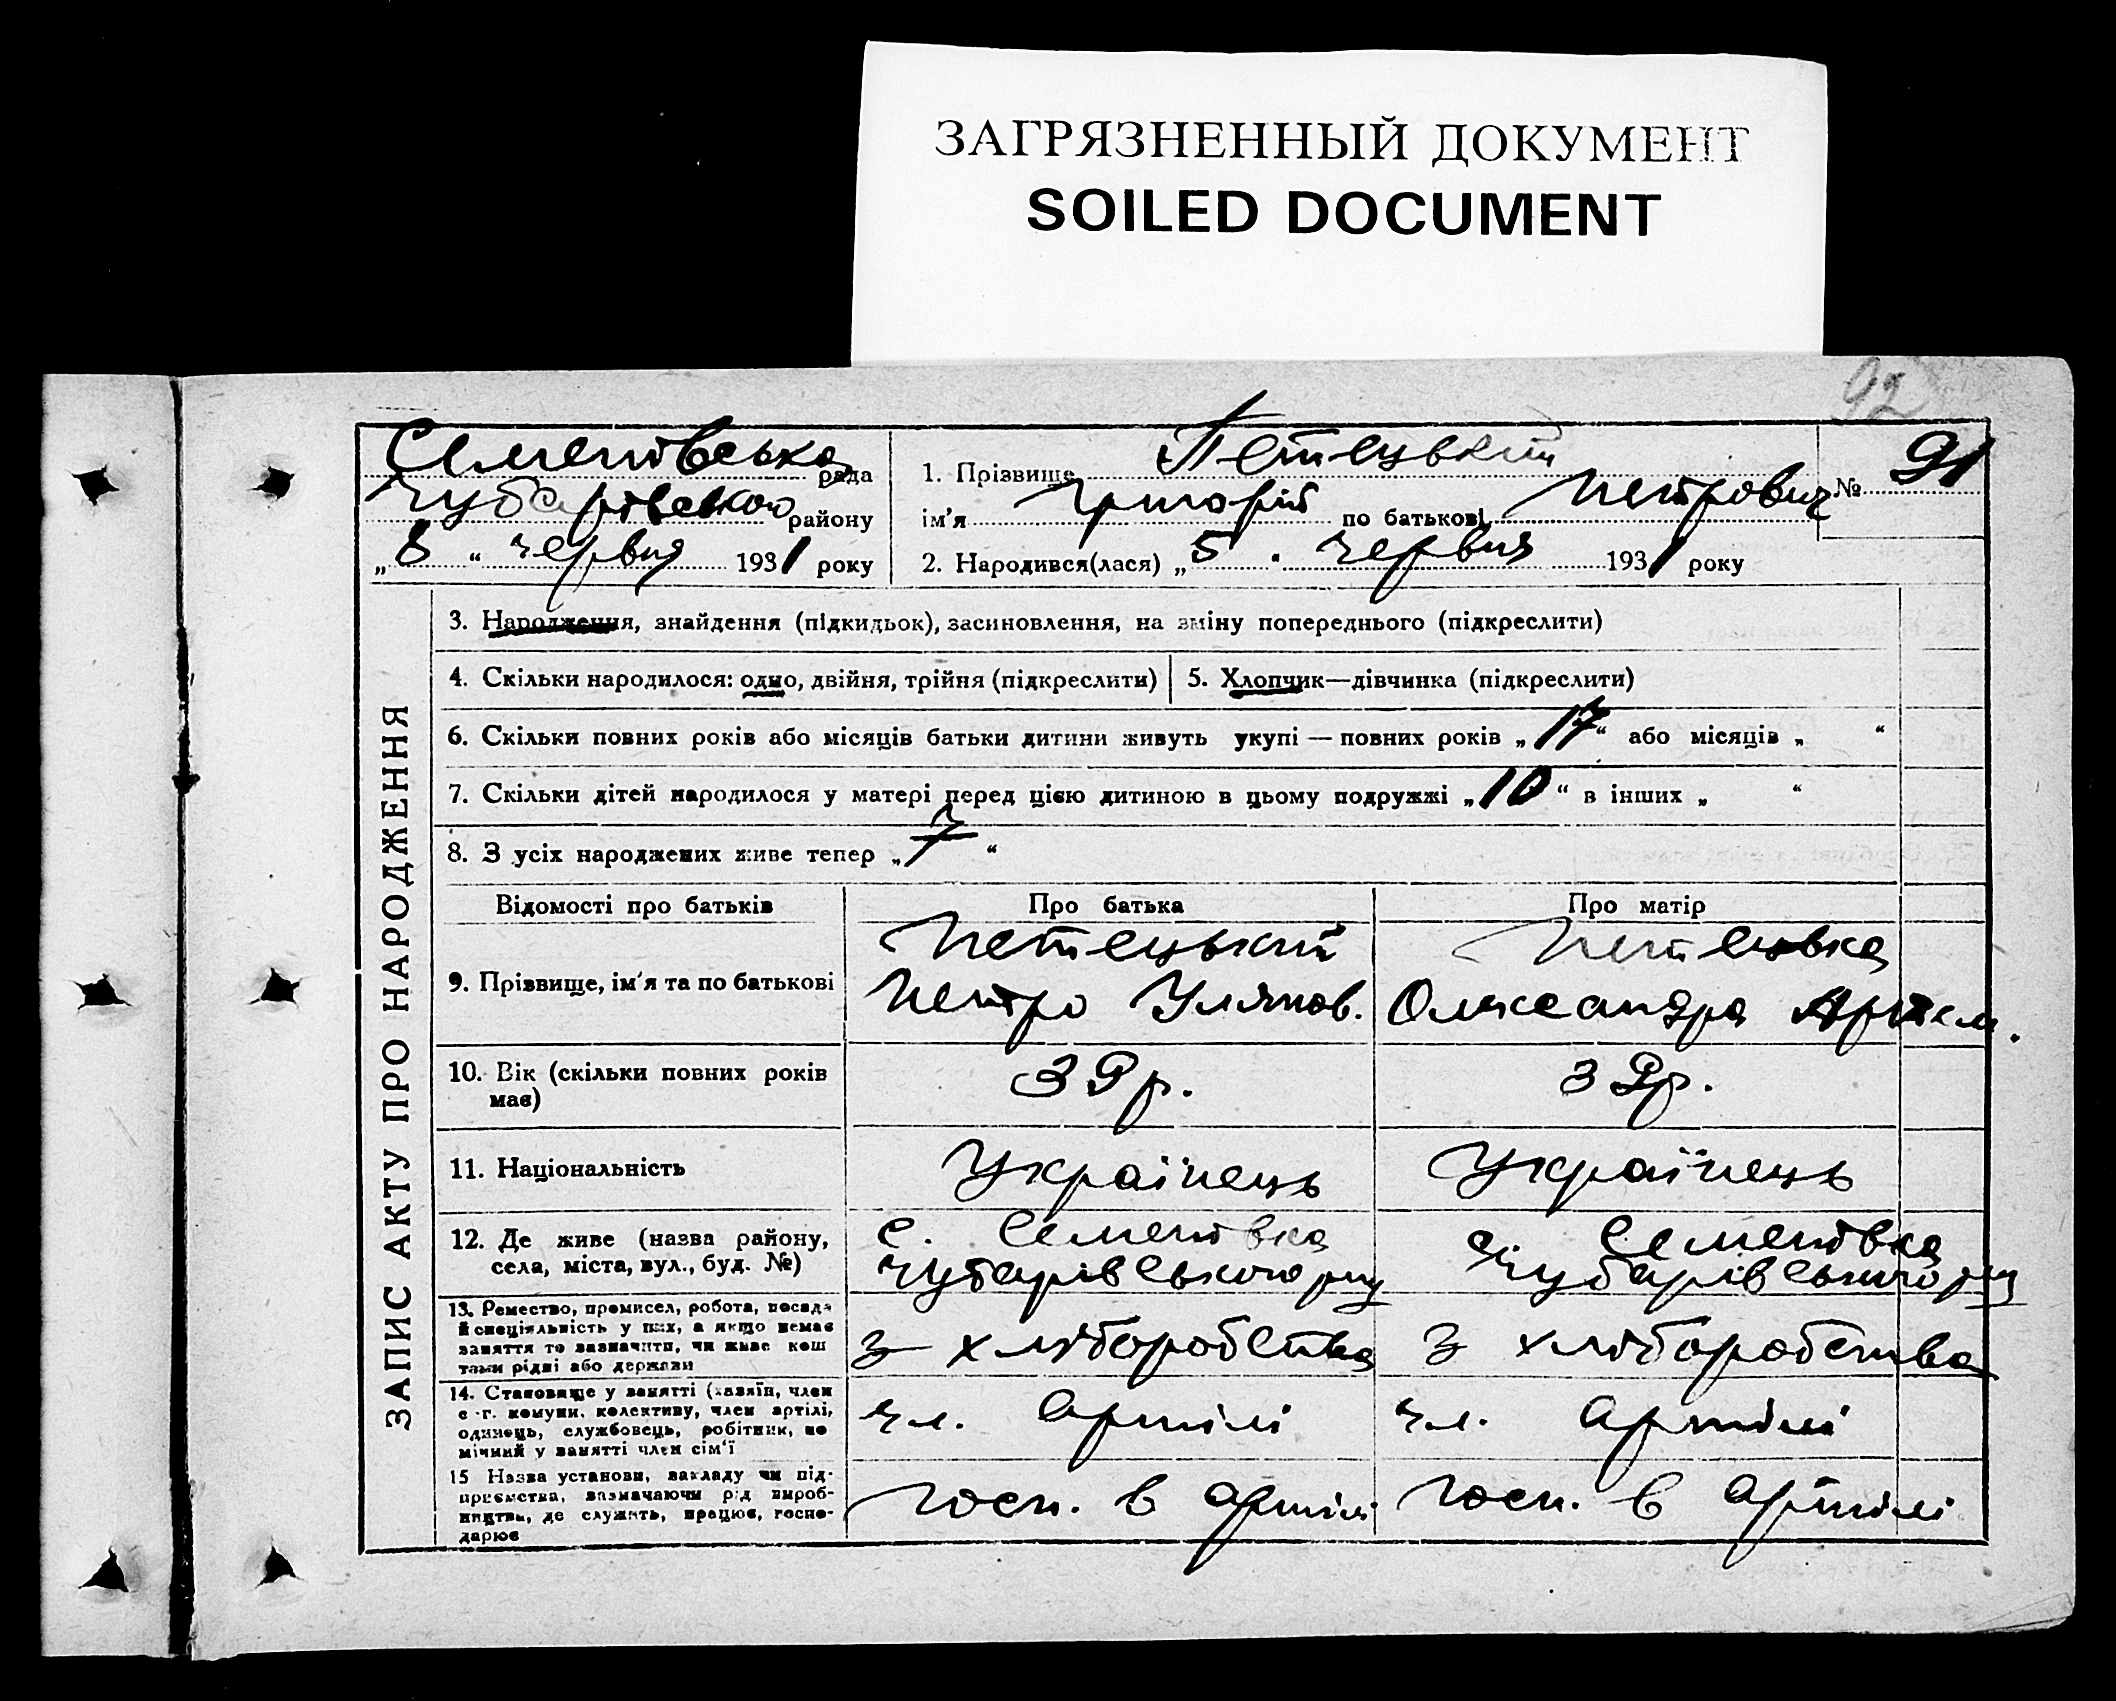 ЗАГРЯЗНЕННЫЙ ДОКУМЕНТ
SOILED DOCUMENT
92
Семенівська рада
Чубарівського району
„8“ червня 1931 року
1. Прізвище Петецький
№ 91
ім'я Григорій по батькові Петрович
2. Народився(лася) „5 . червня 1931 року
ЗАПИС АКТУ ПРО НАРОДЖЕННЯ
3. Народження, знайдення (підкидьок), засиновлення, на зміну попереднього (підкреслити)
4. Скільки народилося: одно, двійня, трійня (підкреслити)
5. Хлопчик—дівчинка (підкреслити)
6. Скільки повних років або місяців батьки дитини живуть укупі — повних років „17“ або місяців „ “
7. Скільки дітей народилося у матері перед цією дитиною в цьому подружжі „10“ в інших „ “
8. З усіх народжених живе тепер „7“
Відомості про батьків
Про батька
Про матір
9. Прізвище, ім'я та по батькові
Петецький
Петро
Петецька
Олександра Артем.
10. Вік (скільки повних років
має)
39 р.
39 р.
11. Національність
Українець
Українець
12. Де живе (назва району,
села, міста, вул., буд. №)
с. Семенівка
Чубарівського р-ну
с. Семенівка
Чубарівського р-ну
13. Ремество, промисел, робота, посада
й спеціяльність у них, а якщо немає
заняття то зазначити, чи живе кош
тами рідні або держави
з хліборобства
з хліборобства
14. Становище у занятті (хазяїн, член
с.-г. комуни, колективу, член артілі,
одинець, службовець, робітник, по
мічний у занятті член сім'ї
чл. артілі
чл. артілі
15 Назва установи, закладу чи під-
приємства, зазначаючи рід вироб-
ництва, де служить, працює, госпо-
дарює
госп. в артілі
госп. в артілі